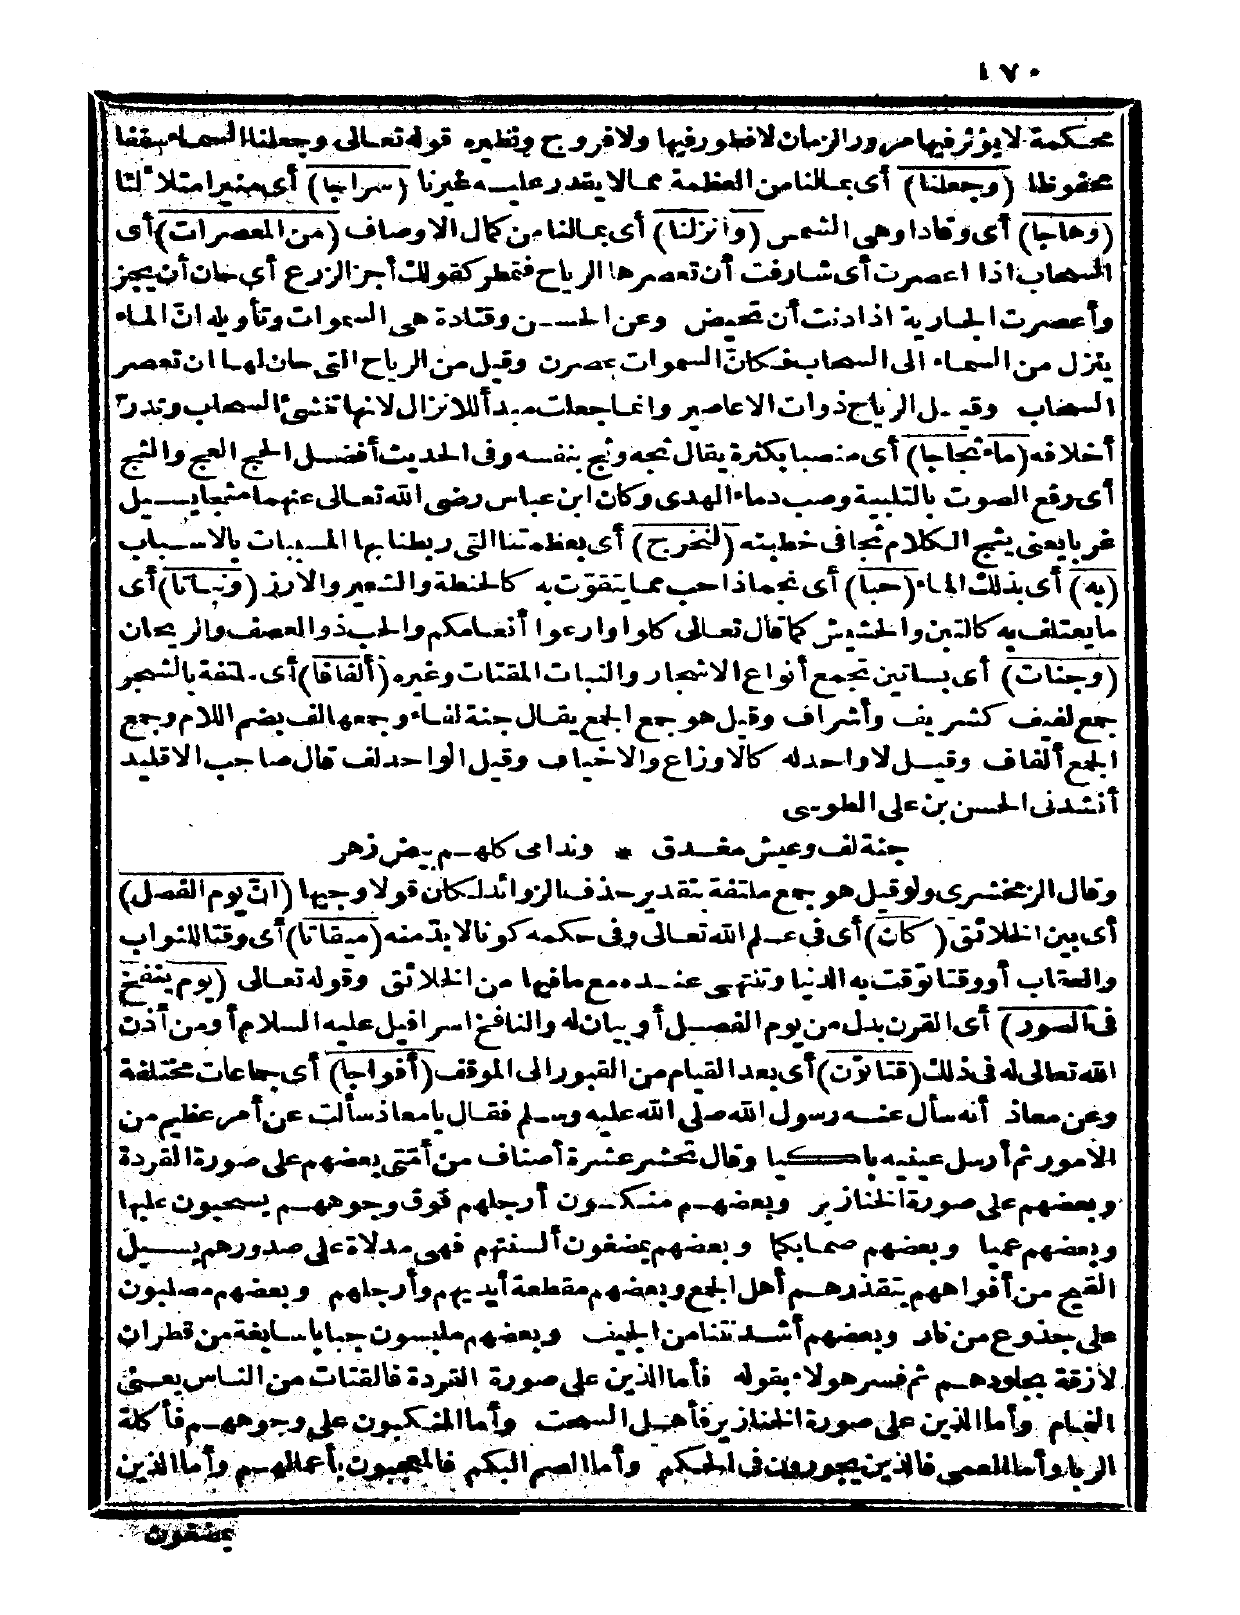 ١٧٠
محكمة لا يؤثر فيها مرور الزمان لا فطور فيها ولا فروج ونظيره قوله تعالى وجعلنا السماء سقفا
محفوظا (وجعلنا) أى بما لنا من العظمة مما لا يقدر عليه غيرنا (سراجا) أى منيرا متلألئا
(وهاجا) أى وقادا وهى الشمس (وأنزلنا) أى بما لنا من كمال الاوصاف (من المعصرات) أى
السحاب اذا اعصرت أى شارفت أن تعصرها الرياح فتمطر كقولك أجز الزرع أى حان أن يجز
وأعصرت الجارية اذا دنت أن تحيض وعن الحسن وقتادة هى السموات وتأويله انّ الماء
ينزل من السماء الى السحاب فكانّ السموات عصرن وقيل من الرياح التى حان لها ان تعصر
السحاب وقيل الرياح ذوات الاعاصير وانما جعلت مبدأ للانزال لانها تنشئ السحاب وتدرّ
أخلافه (ماء ثجاجا) أى منصبا بكثرة يقال ثجه وثج بنفسه وفى الحديث أفضل الحج العج والثج
أى رفع الصوت بالتلبية وصب دماء الهدى وكان ابن عباس رضى الله تعالى عنهما مثجا يسيل
غربا يعنى يثج الكلام ثجا فى خطبته (لنخرج) أى بعظمتنا التى ربطنا بها المسببات بالاسباب
(به) أى بذلك الماء (حبا) أى نجما ذا حب مما يتقوّت به كالحنطة والشعير والارز (ونباتا) أى
ما يعتلف به كالتبن والحشيش كما قال تعالى كلوا وارعوا أنعامكم والحب ذو العصف والريحان
(وجنات) أى بساتين تجمع أنواع الاشجار والنبات المقتات وغيره (ألفافا) أى ملتفة بالشجر
جمع لفيف كشريف وأشراف وقيل هو جمع الجمع يقال جنة لفاء وجمعها لف بضم اللام وجمع
الجمع ألفاف وقيل لا واحد له كالاوزاع والاخياف وقيل الواحد لف قال صاحب الاقليد
أنشدنى الحسن بن على الطوسى
جنة لف وعيش مغدق * وندامى كلهم بيض زهر
وقال الزمخشرى ولو قيل هو جمع ملتفة بتقدير حذف الزوائد لكان قولا وجيها (انّ يوم الفصل)
أى بين الخلائق (كان) أى فى علم الله تعالى وفى حكمه كونا لا بدّ منه (ميقاتا) أى وقتا للثواب
والعقاب أو وقتا توّقت به الدنيا وتنتهى عنده مع ما فيها من الخلائق وقوله تعالى (يوم ينفخ
فى الصور) أى القرن بدل من يوم الفصل أو بيان له والنافخ اسرافيل عليه السلام أو من أذن
الله تعالى له فى ذلك (فتأتون) أى بعد القيام من القبور الى الموقف (أفواجا) أى جماعات مختلفة
وعن معاذ أنه سأل عنه رسول الله صلى الله عليه وسلم فقال يا معاذ سألت عن أمر عظيم من
الامور ثم أرسل عينيه باكيا وقال تحشر عشرة أصناف من أمّتى بعضهم على صورة القردة
وبعضهم على صورة الخنازير وبعضهم منكسون أرجلهم فوق وجوههم يسحبون عليها
وبعضهم عميا وبعضهم صما بكما وبعضهم يمضغون ألسنتهم فهى مدلاة على صدورهم يسيل
القيح من أفواههم يتقذرهم أهل الجمع وبعضهم مقطعة أيديهم وأرجلهم وبعضهم مصلبون
على جذوع من نار وبعضهم أشد نتنا من الجيف وبعضهم ملبسون جبابا سابغة من قطران
لازقة بجلودهم ثم فسر هولاء بقوله فأما الذين على صورة القردة فالقتات من الناس يعنى
النمام وأما الذين على صورة الخنازير فأهل السحت وأما المنكبون على وجوههم فأكلة
الربا وأما العمى فالذين يجورون فى الحكم وأما الصم البكم فالمعجبون بأعمالهم وأما الذين
يمضغون